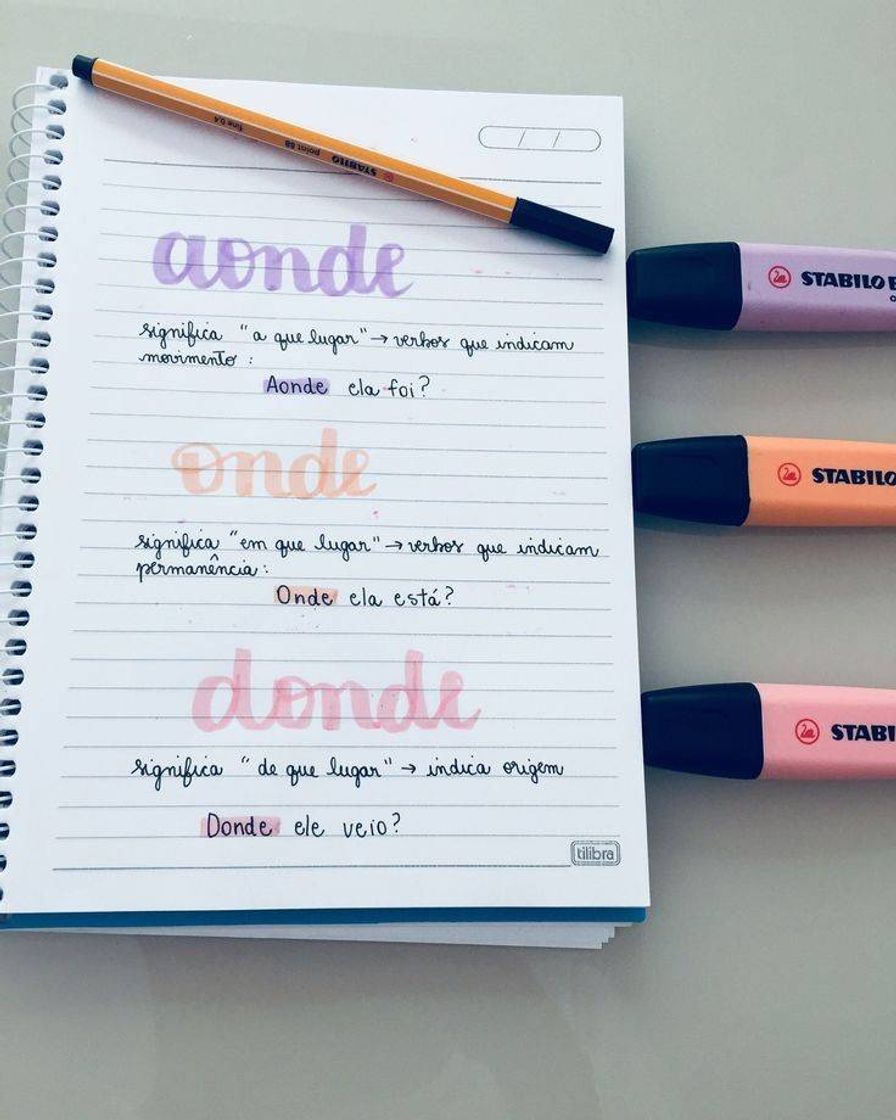 STABILO point 88 fine 0.4
/ /
aonde
STABILO B
significa "a que lugar" → verbos que indicam
movimento :
Aonde ela foi?
onde
STABILO
significa "em que lugar" → verbos que indicam
permanência :
Onde ela está?
donde
STABI
significa "de que lugar" → indica origem
Donde ele veio?
tilibra